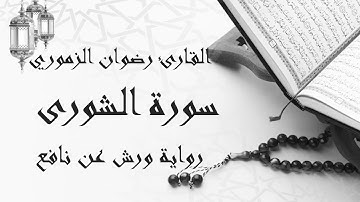 القارئ رضوان الزموري
سورة الشورى
رواية ورش عن نافع